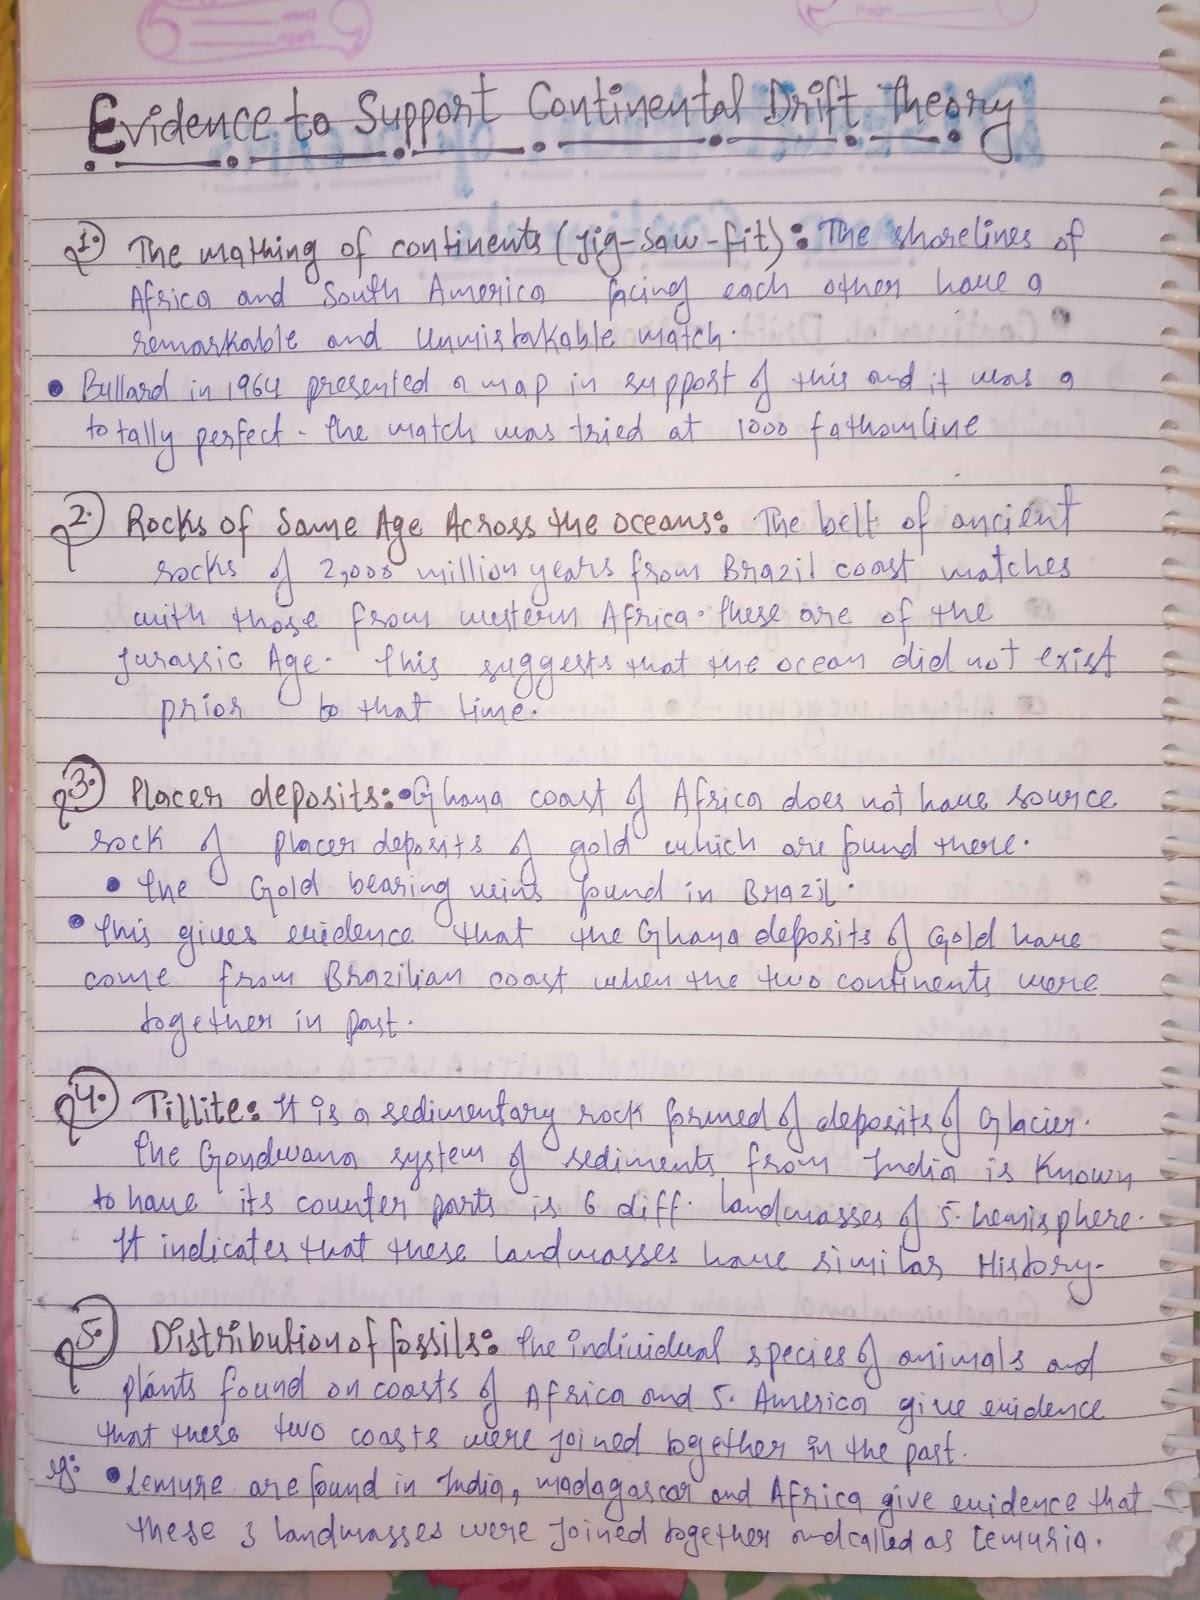 Page
Date
Page
Evidence to Support Continental Drift Theory
1. The mathing of continents (Jig-Saw-fit): The shorelines of
Africa and South America facing each other have a
remarkable and unmistakable match.
• Bullard in 1964 presented a map in support of this and it was a
totally perfect. The match was tried at 1000 fathomline
2. Rocks of Same Age Across the oceans: The belt of ancient
rocks of 2,000 million years from Brazil coast matches
with those from western Africa. These are of the
Jurassic Age. This suggests that the ocean did not exist
prior to that time.
3. Placer deposits: • Ghana coast of Africa does not have source
rock of placer deposits of gold which are found there.
• The Gold bearing veins found in Brazil.
• This gives evidence that the Ghana deposits of Gold have
come from Brazilian coast when the two continents were
together in past.
4. Tillite: It is a sedimentary rock formed of deposits of Glacier.
The Gondwana system of sediments from India is known
to have its counter parts is 6 diff. landmasses of S. hemisphere.
It indicates that these landmasses have similar History.
5. Distribution of fossils: The individual species of animals and
plants found on coasts of Africa and S. America give evidence
that these two coasts were joined together in the past.
eg: • Lemure are found in India, madagascar and Africa give evidence that
these 3 landmasses were joined together and called as Lemuria.